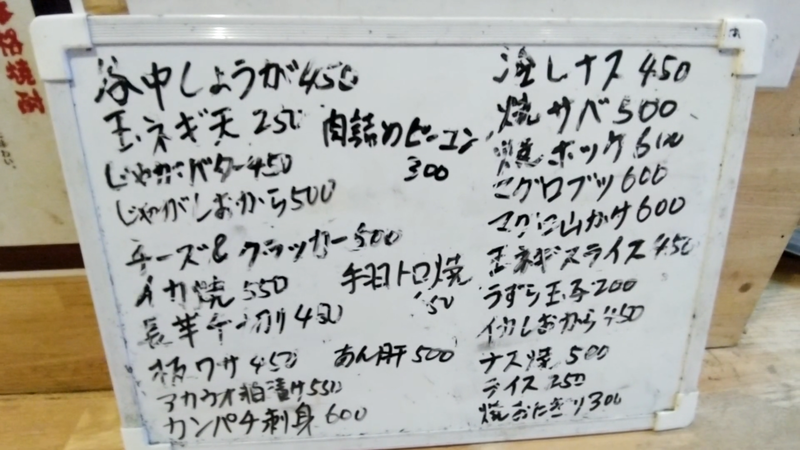 本格焼酎
谷中しょうが450
玉ネギ天250
肉詰めピーマン
300
じゃがバター450
じゃがしおから500
チーズ&クラッカー500
イカ焼550
手羽トロ焼
長芋千切り450
板ワサ450
あん肝500
アカウオ粕漬け550
カンパチ刺身600
冷しナス450
焼サバ500
焼ホッケ600
マグロブツ600
マグロ山かけ600
玉ネギスライス450
うずら玉子200
イカしおから450
ナス焼500
ライス250
焼おにぎり300